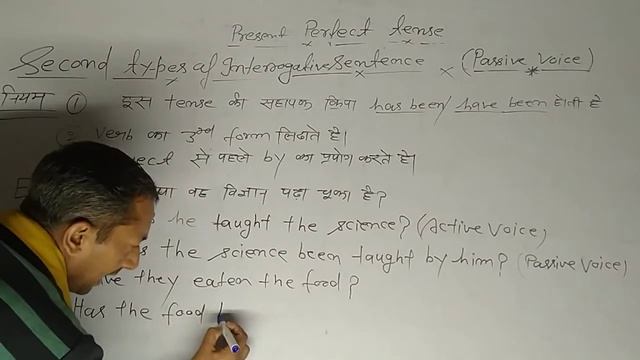 Present Perfect tense
Second types of Interrogative Sentence (Passive Voice)
नियम ① इस tense की सहायक क्रिया has been/have been होती है
verb का 3rd form लिखते है।
से पहले by का प्रयोग करते है।
वह विज्ञान पढ़ा चूका है?
he taught the science? (Active Voice)
the science been taught by him? (Passive Voice)
they eaten the food?
Has the food